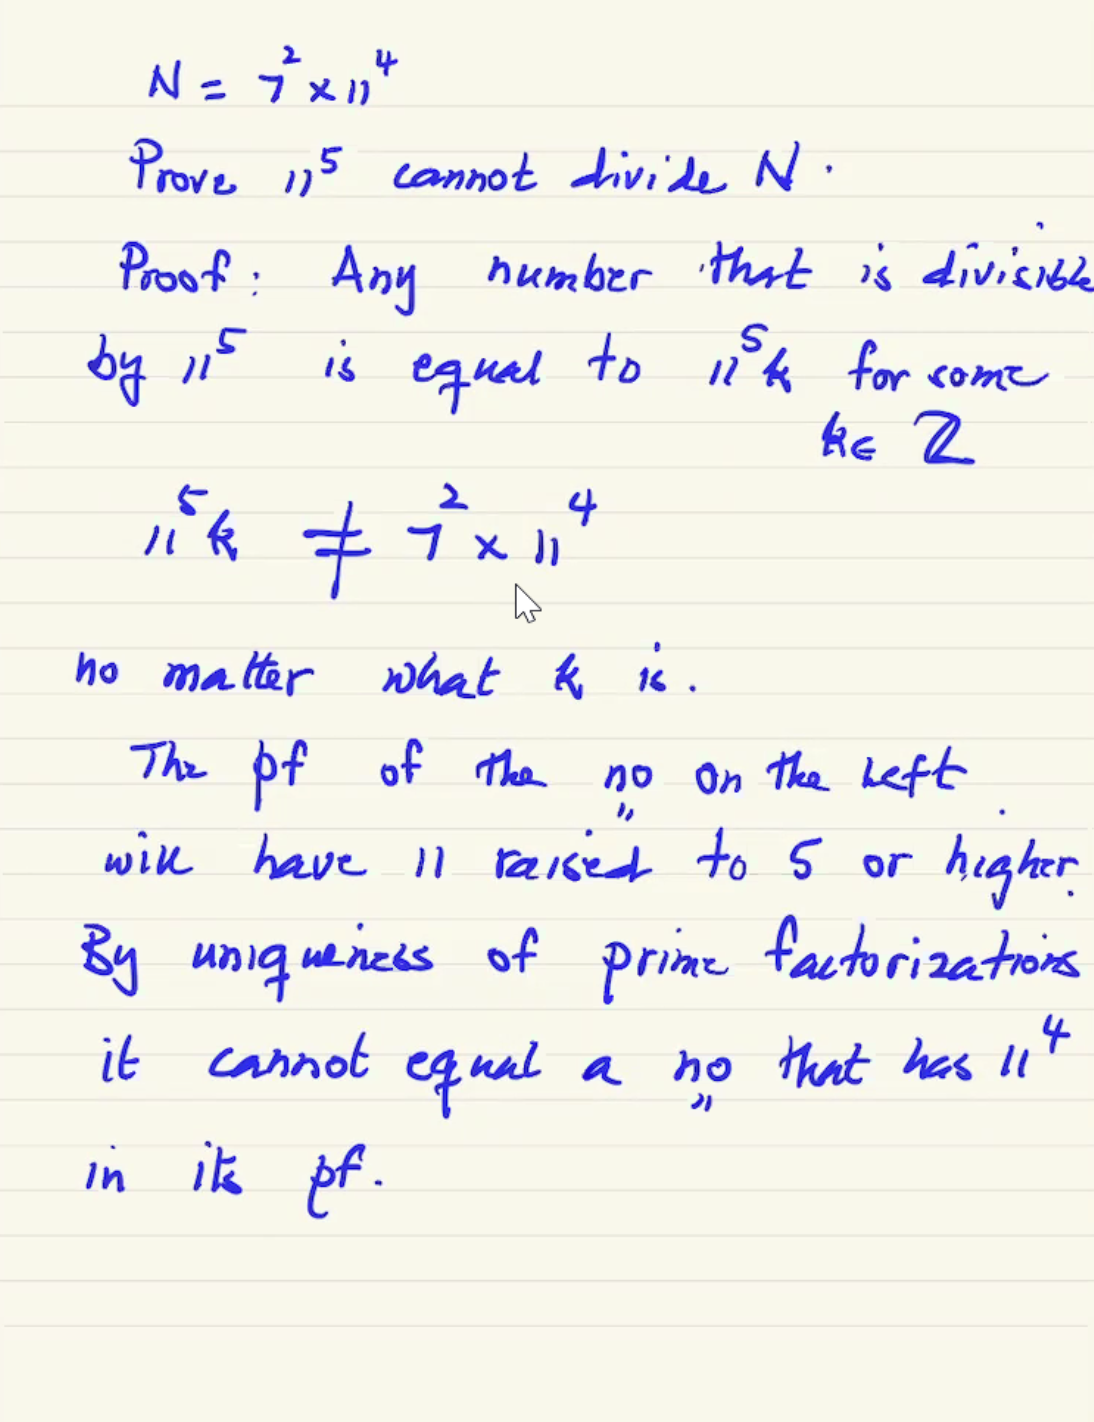 N = 7² × 11⁴
Prove 11⁵ cannot divide N.
Proof: Any number that is divisible
by 11⁵ is equal to 11⁵k for some
k ∈ ℤ
11⁵k ≠ 7² × 11⁴
no matter what k is.
The pf of the no on the left
will have 11 raised to 5 or higher.
By uniqueness of prime factorizations
it cannot equal a no that has 11⁴
in its pf.